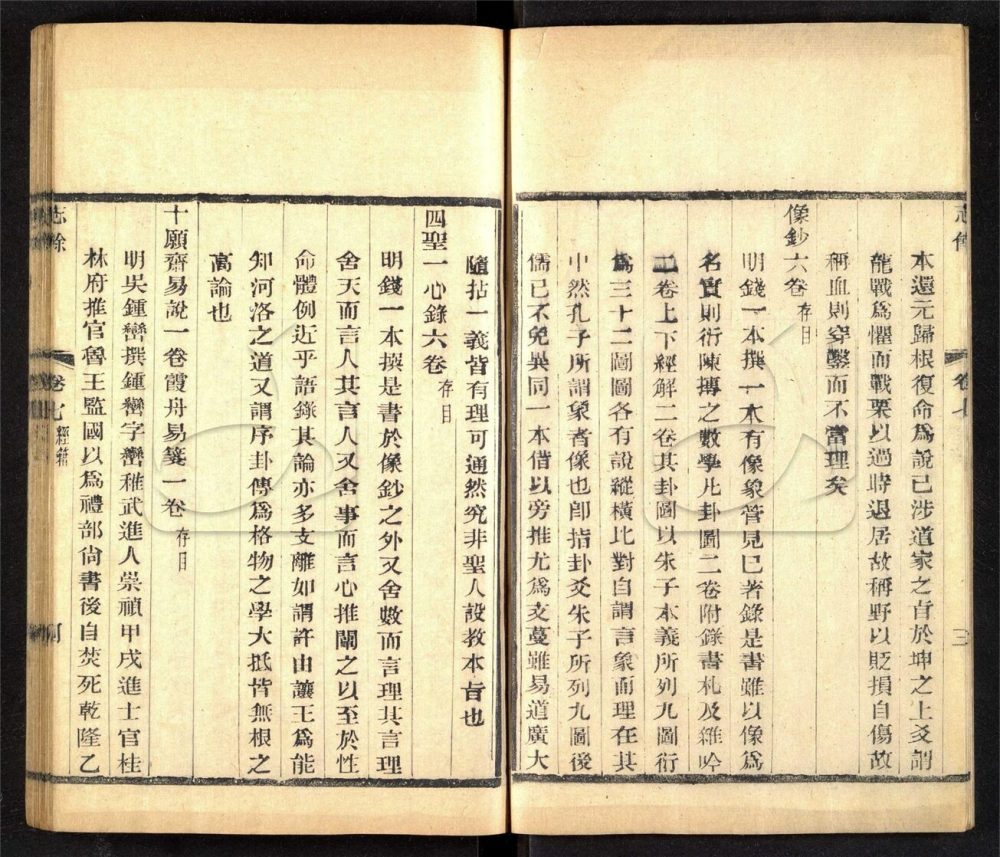 志餘
卷七
三
本還元歸根復命爲說已涉道家之旨於坤之上爻謂
龍戰爲懼而戰栗以過時退居故稱野以貶損自傷故
稱血則穿鑿而不當理矣
像鈔六卷存目
明錢一本撰一本有像象管見已著錄是書雖以像爲
名實則衍陳摶之數學凡卦圖二卷附錄書札及雜吟
二卷上下經解二卷其卦圖以朱子本義所列九圖衍
爲三十二圖圖各有說縱橫比對自謂言象而理在其
中然孔子所謂象者像也卽指卦爻朱子所列九圖後
儒已不免異同一本借以旁推尤爲支蔓雖易道廣大
隨拈一義皆有理可通然究非聖人設敎本旨也
四聖一心錄六卷存目
明錢一本撰是書於像鈔之外又舍數而言理其言理
舍天而言人其言人又舍事而言心推闡之以至於性
命體例近乎語錄其論亦多支離如謂許由讓王爲能
知河洛之道又謂序卦傳爲格物之學大抵皆無根之
高論也
十願齋易說一卷霞舟易箋一卷存目
明吳鍾巒撰鍾巒字巒稚武進人崇禎甲戌進士官桂
林府推官魯王監國以爲禮部尙書後自焚死乾隆乙
志餘
卷七 經籍